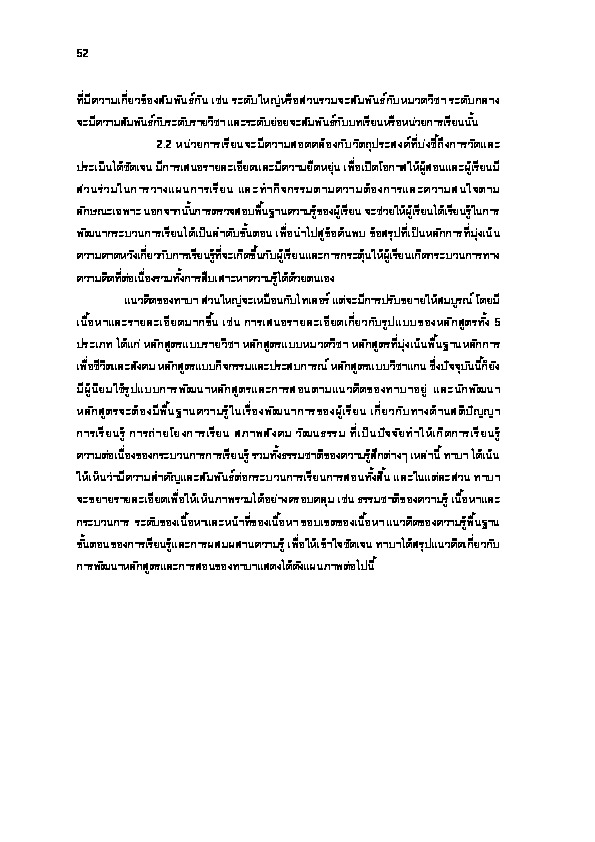 52
ที่มีความเกี่ยวข้องสัมพันธ์กัน เช่น ระดับใหญ่หรือส่วนรวมจะสัมพันธ์กับหมวดวิชา ระดับกลาง
จะมีความสัมพันธ์กับระดับรายวิชา และระดับย่อยจะสัมพันธ์กับบทเรียนหรือหน่วยการเรียนนั้น
2.2 หน่วยการเรียนจะมีความสอดคล้องกับวัตถุประสงค์ที่บ่งชี้ถึงการวัดและ
ประเมินได้ชัดเจน มีการเสนอรายละเอียดและมีความยืดหยุ่น เพื่อเปิดโอกาสให้ผู้สอนและผู้เรียนมี
ส่วนร่วมในการวางแผนการเรียน และทำกิจกรรมตามความต้องการและความสนใจตาม
ลักษณะเฉพาะ นอกจากนั้นการตรวจสอบพื้นฐานความรู้ของผู้เรียน จะช่วยให้ผู้เรียนได้เรียนรู้ในการ
พัฒนากระบวนการเรียนได้เป็นลำดับขั้นตอน เพื่อนำไปสู่ข้อค้นพบ ข้อสรุปที่เป็นหลักการที่มุ่งเน้น
ความคาดหวังเกี่ยวกับการเรียนรู้ที่จะเกิดขึ้นกับผู้เรียนและการกระตุ้นให้ผู้เรียนเกิดกระบวนการทาง
ความคิดที่ต่อเนื่องรวมทั้งการสืบเสาะหาความรู้ได้ด้วยตนเอง
แนวคิดของทาบา ส่วนใหญ่จะเหมือนกับไทเลอร์ แต่จะมีการปรับขยายให้สมบูรณ์ โดยมี
เนื้อหาและรายละเอียดมากขึ้น เช่น การเสนอรายละเอียดเกี่ยวกับรูปแบบของหลักสูตรทั้ง 5
ประเภท ได้แก่ หลักสูตรแบบรายวิชา หลักสูตรแบบหมวดวิชา หลักสูตรที่มุ่งเน้นพื้นฐานหลักการ
เพื่อชีวิตและสังคม หลักสูตรแบบกิจกรรมและประสบการณ์ หลักสูตรแบบวิชาแกน ซึ่งปัจจุบันนี้ก็ยัง
มีผู้นิยมใช้รูปแบบการพัฒนาหลักสูตรและการสอนตามแนวคิดของทาบาอยู่ และนักพัฒนา
หลักสูตรจะต้องมีพื้นฐานความรู้ในเรื่องพัฒนาการของผู้เรียน เกี่ยวกับทางด้านสติปัญญา
การเรียนรู้ การถ่ายโยงการเรียน สภาพสังคม วัฒนธรรม ที่เป็นปัจจัยทำให้เกิดการเรียนรู้
ความต่อเนื่องของกระบวนการการเรียนรู้ รวมทั้งธรรมชาติของความรู้สึกต่างๆ เหล่านี้ ทาบา ได้เน้น
ให้เห็นว่ามีความสำคัญและสัมพันธ์ต่อกระบวนการเรียนการสอนทั้งสิ้น และในแต่ละส่วน ทาบา
จะขยายรายละเอียดเพื่อให้เห็นภาพรวมได้อย่างครอบคลุม เช่น ธรรมชาติของความรู้ เนื้อหาและ
กระบวนการ ระดับของเนื้อหาและหน้าที่ของเนื้อหา ขอบเขตของเนื้อหา แนวคิดของความรู้พื้นฐาน
ขั้นตอนของการเรียนรู้และการผสมผสานความรู้ เพื่อให้เข้าใจชัดเจน ทาบาได้สรุปแนวคิดเกี่ยวกับ
การพัฒนาหลักสูตรและการสอนของทาบาแสดงได้ดังแผนภาพต่อไปนี้